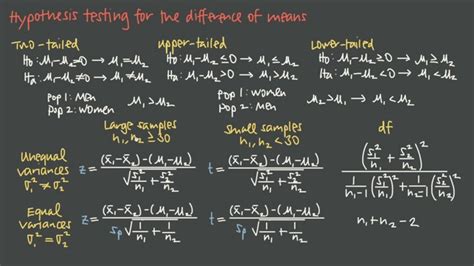 Hypothesis testing for the difference of means
Two-tailed
H₀: μ₁-μ₂=0 → μ₁=μ₂
Hₐ: μ₁-μ₂≠0 → μ₁≠μ₂
Pop 1: Men
Pop 2: women
μ₁>μ₂
upper-tailed
H₀: μ₁-μ₂≤0 → μ₁≤μ₂
Hₐ: μ₁-μ₂>0 → μ₁>μ₂
Pop 1: women
Pop 2: Men
μ₂>μ₁ → μ₁<μ₂
Lower-tailed
H₀: μ₁-μ₂≥0 → μ₁≥μ₂
Hₐ: μ₁-μ₂<0 → μ₁<μ₂
Large samples
n₁, n₂ ≥30
small samples
n₁, n₂ <30
df
Unequal
variances
σ₁² ≠ σ₂²
z = ((x̄₁-x̄₂)-(μ₁-μ₂)) / √(s₁²/n₁ + s₂²/n₂)
t = ((x̄₁-x̄₂)-(μ₁-μ₂)) / √(s₁²/n₁ + s₂²/n₂)
(s₁²/n₁ + s₂²/n₂)² / (1/(n₁-1) (s₁²/n₁)² + 1/(n₂-1) (s₂²/n₂)²)
Equal
variances
σ₁² = σ₂²
z = ((x̄₁-x̄₂)-(μ₁-μ₂)) / (sₚ √(1/n₁ + 1/n₂))
t = ((x̄₁-x̄₂)-(μ₁-μ₂)) / (sₚ √(1/n₁ + 1/n₂))
n₁+n₂-2